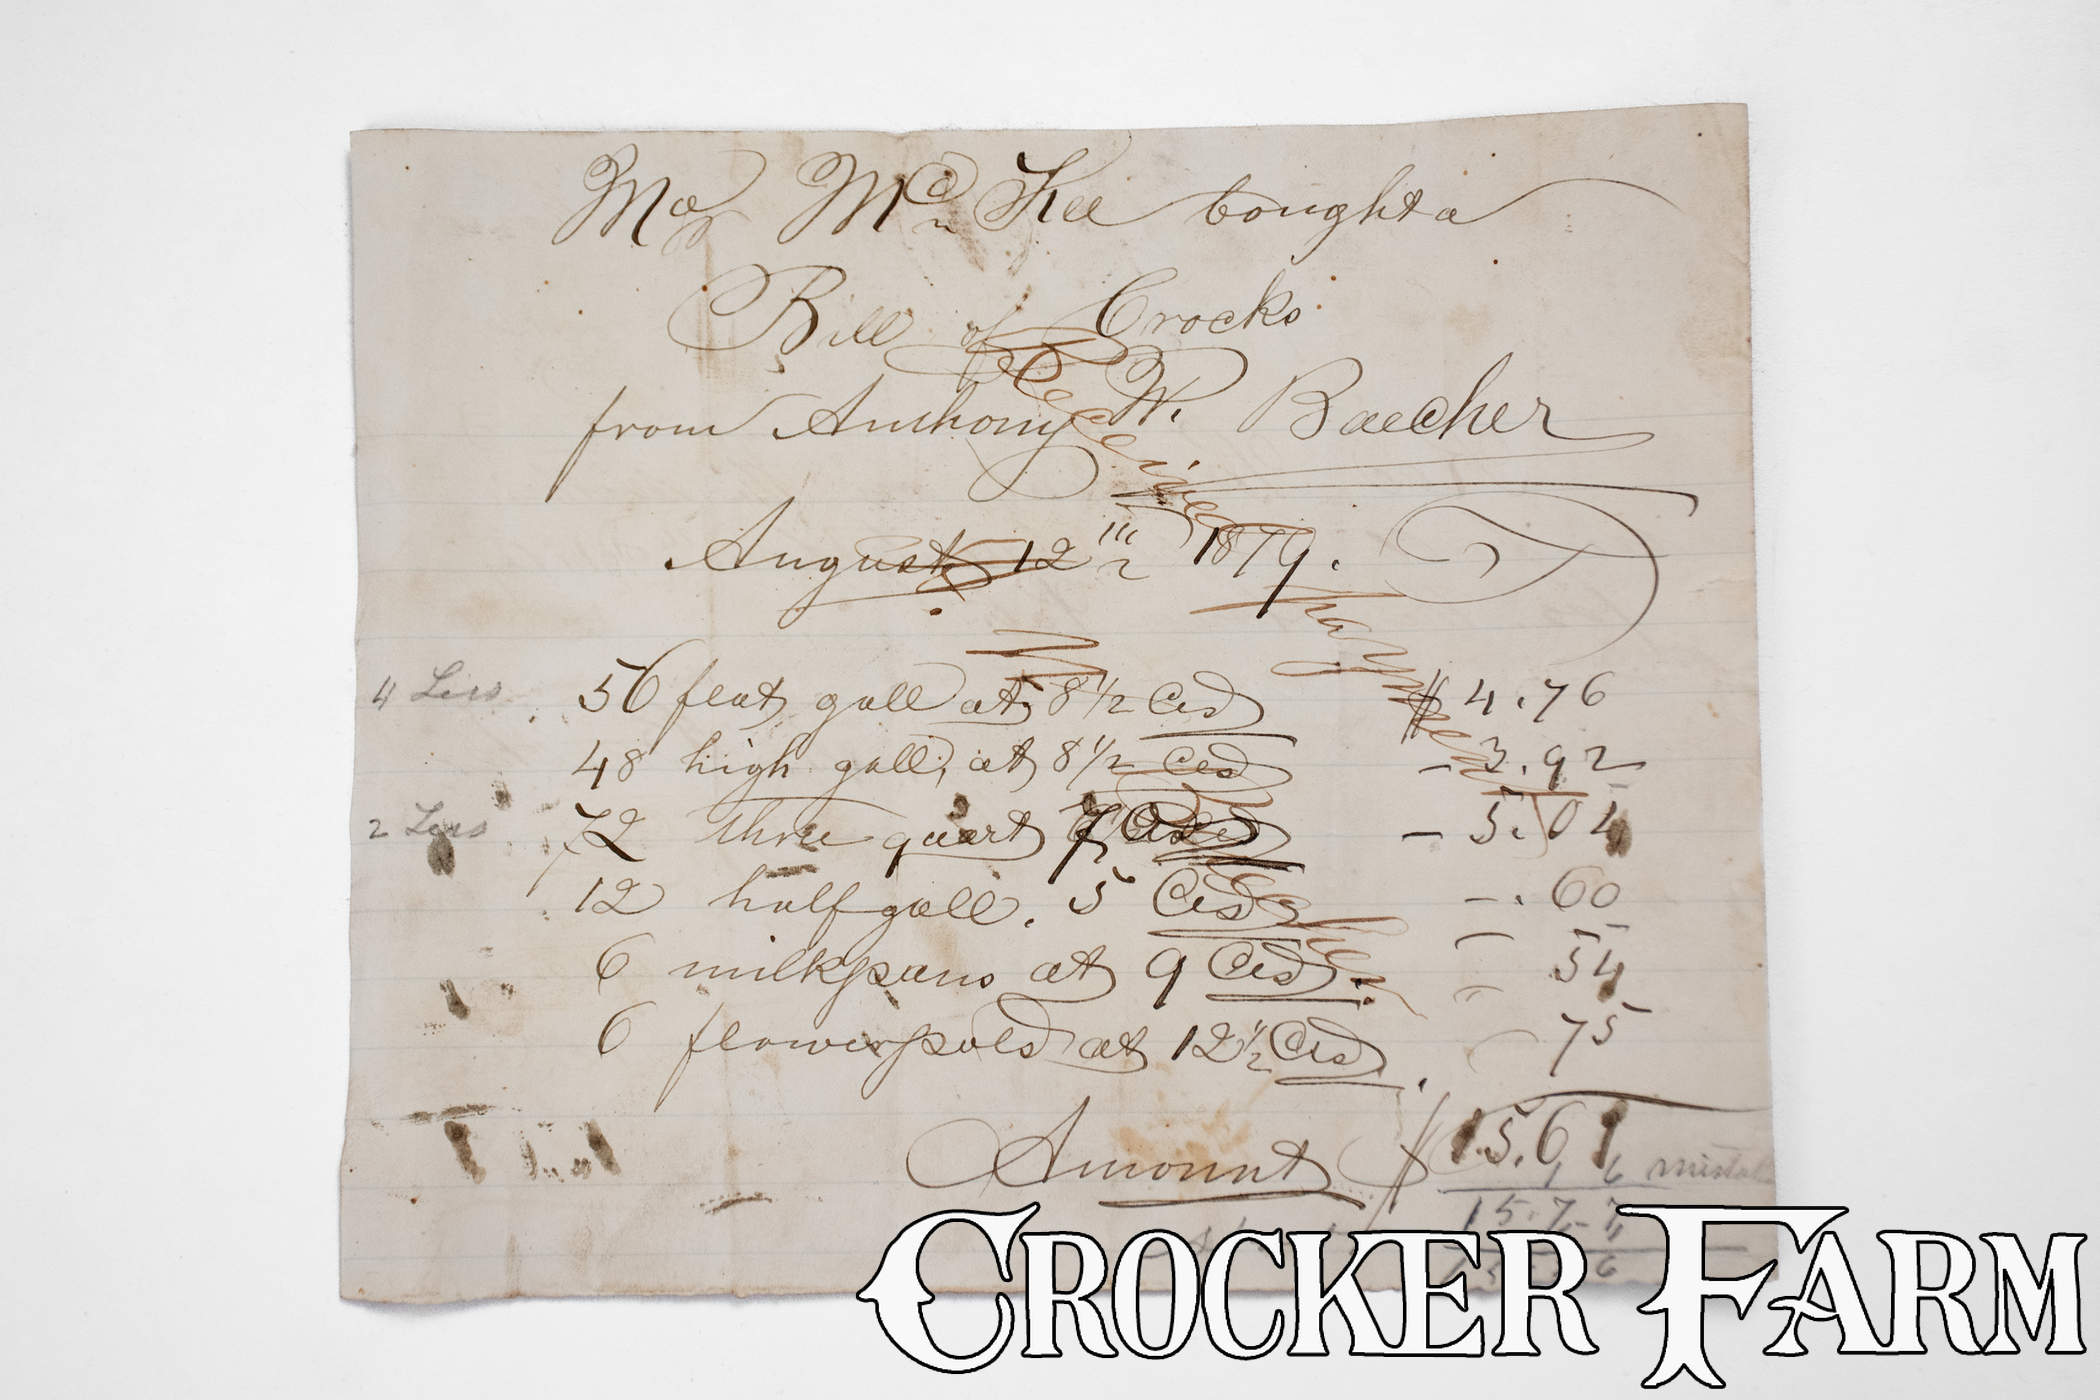 Mr McKee bought a
Bill of Crocks
from Anthony W. Baecher
August 12th 1879.
4 Less 56 flat gall at 8 1/2 Cts $ 4.76
48 high gall, at 8 1/2 Cts - 3.92
2 Less 72 three quart 7 Cts - 5.04
12 half gall. 5 Cts - . 60
6 milkpans at 9 Cts. 54
6 flowerpots at 12 1/2 Cts. 75
Amount $ 15.61
Received
Payment
Baecher
CROCKER FARM